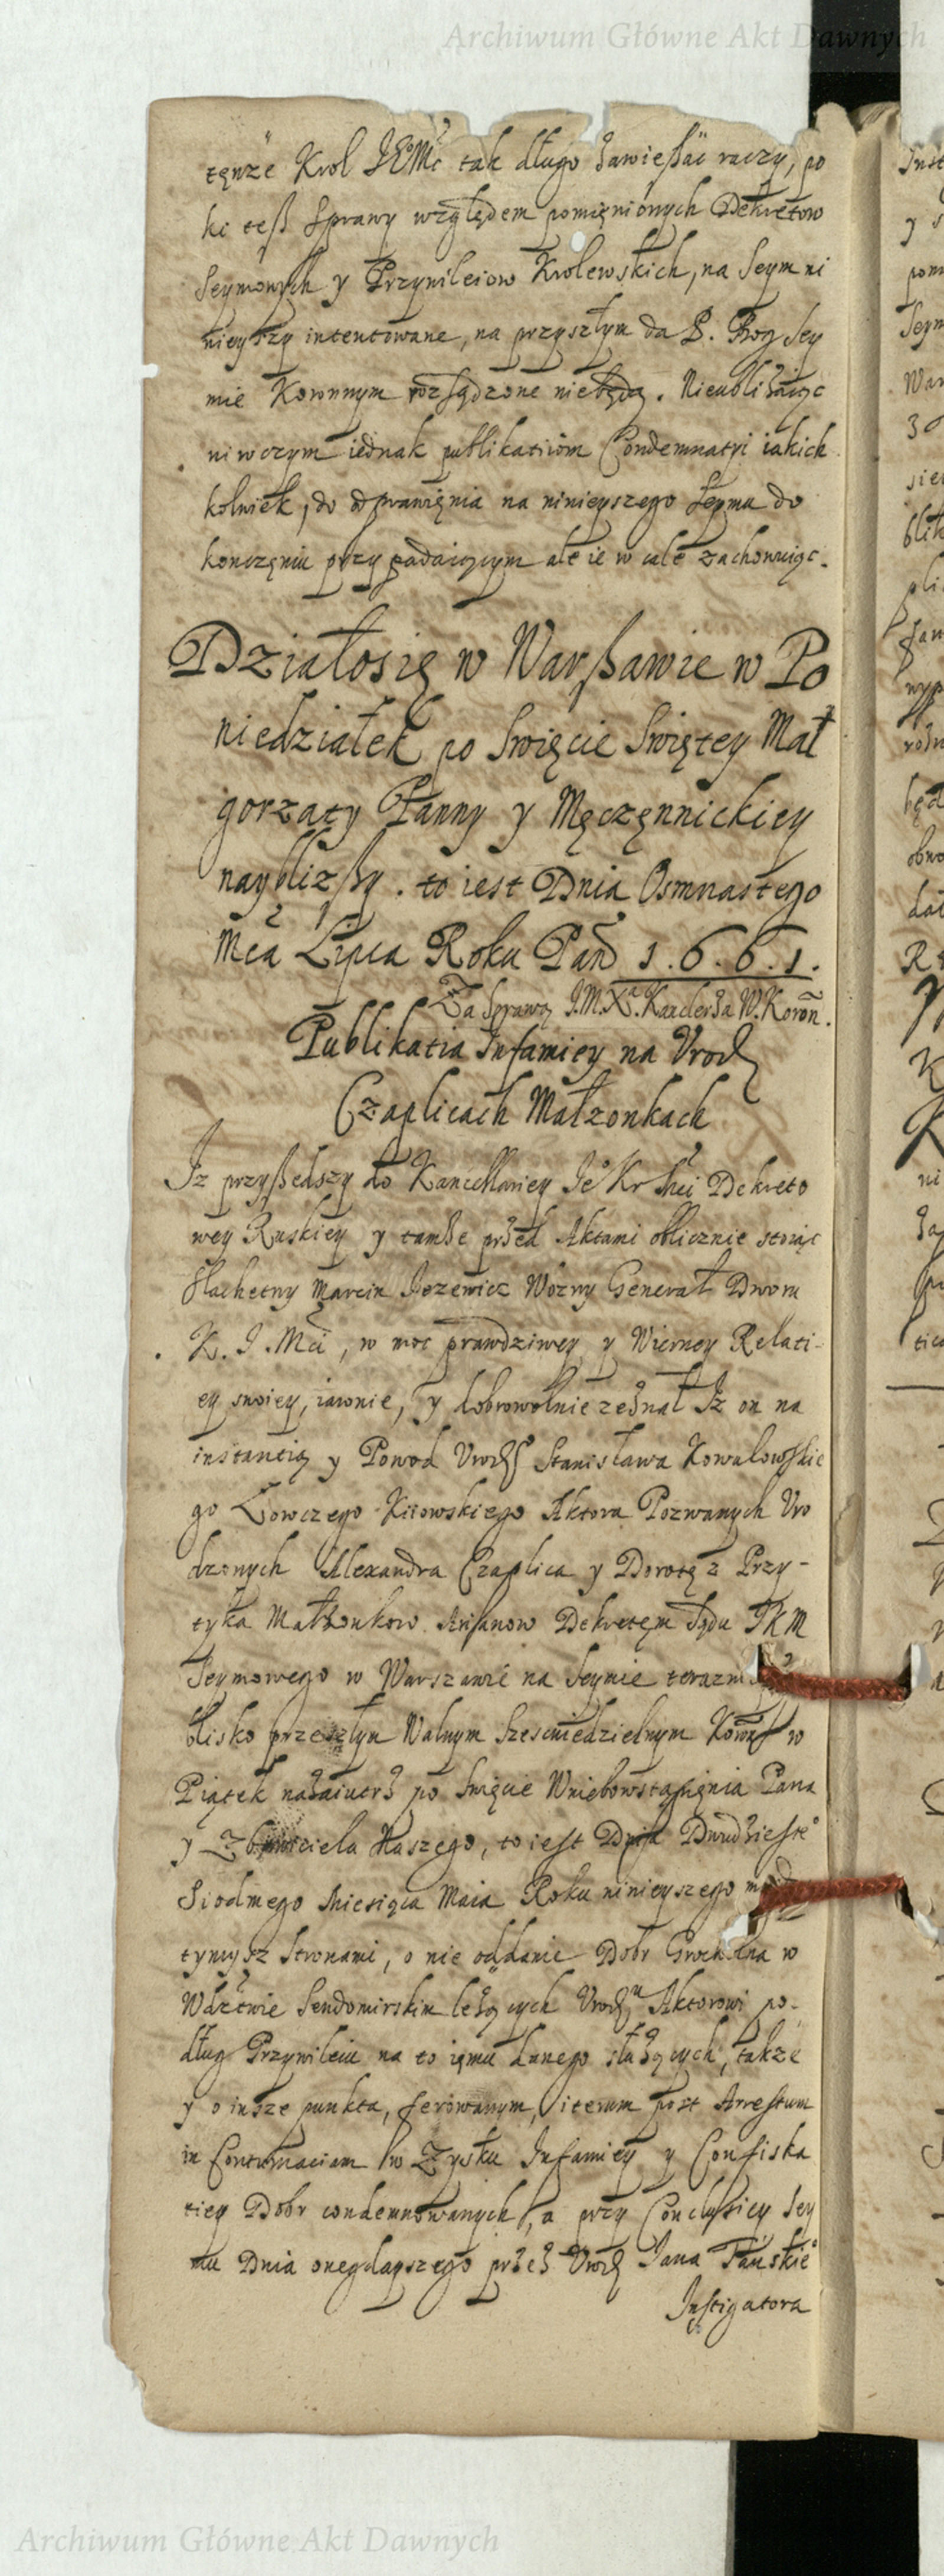 Archiwum Główne Akt Dawnych
tęnże Krol JEMć tak długo zawießać raczy, po
ki teß Sprawy względem pomięnionych Dekretow
Seymowych y Przywileiow Krolewskich, na Seym ni
nieyszy intentowane, na przyszłym da P. Bog Sey
mie Koronnym rozsądzone niebędą. Nieubliżaiąc
niwczym iednak publikatiiom Condemnatyi iakich
kolwiek, do odprawięnia na ninieyszego Seymu do
konczęniu przypadaiącym ale ie w cale zachowuiąc.
Działosię w Warßawie w Po
niedziałek po Swięcie Swiętey Mał
gorzaty Panny y Męczęnnickiey
naybliżßy. to iest Dnia Osmnastego
Mca Lipca Roku Pań 1.6.6.1.
Za Sprawą J.M.Xa. Kanclerza W. Koroñ.
Publikatia Infamiey na Urodz
Czaplicach Małzonkach
Iz przyßedszy do Kancellariey Je Kr Mci Dekreto
wey Ruskiey y tamże przed Aktami oblicznie stoiąc
Slachetny Marcin Jezewicz Wozny Generał Dworu
K. J. Mci, w moc prawdziwey y Wierney Relati-
ey swoiey, iawnie, y dobrowolnie zeznał Iz on na
instantią y Powod Urodz Stanisława Kowalowskie
go Łowczego Kiiowskiego Aktora Pozwanych Uro
dzonych Alexandra Czaplica y Dorotę z Przy-
tyka Małżonkow Arianow Dekretęm Sądu JKM
Seymowego w Warszawie na Seymie
blisko przeszłym Walnym Szesciniedzielnym w
Piątek nazaiutrz po Swięcie Wniebowstąpięnia Pana
y Zbawiciela Naszego, to iest Dnia Dwudzieste
Siodmego Miesiąca Maia Roku ninieyszego
tymysz Stronami, o nie oddanie Dobr w
Wdztwie Sendomirskim leżących Urodz Aktorowi po-
dług Przywileiu na to ięmu danego służących, takze
y o insze punkta, ferowanym, iterum post Arrestum
in Contumaciam w Zysku Infamiey y Confiska
tiey Dobr condemnowanych, a przy Conclusiey Sey
mu Dnia onegdayszego przez Urodz Jana Tanskie
Instigatora
Archiwum Główne Akt Dawnych